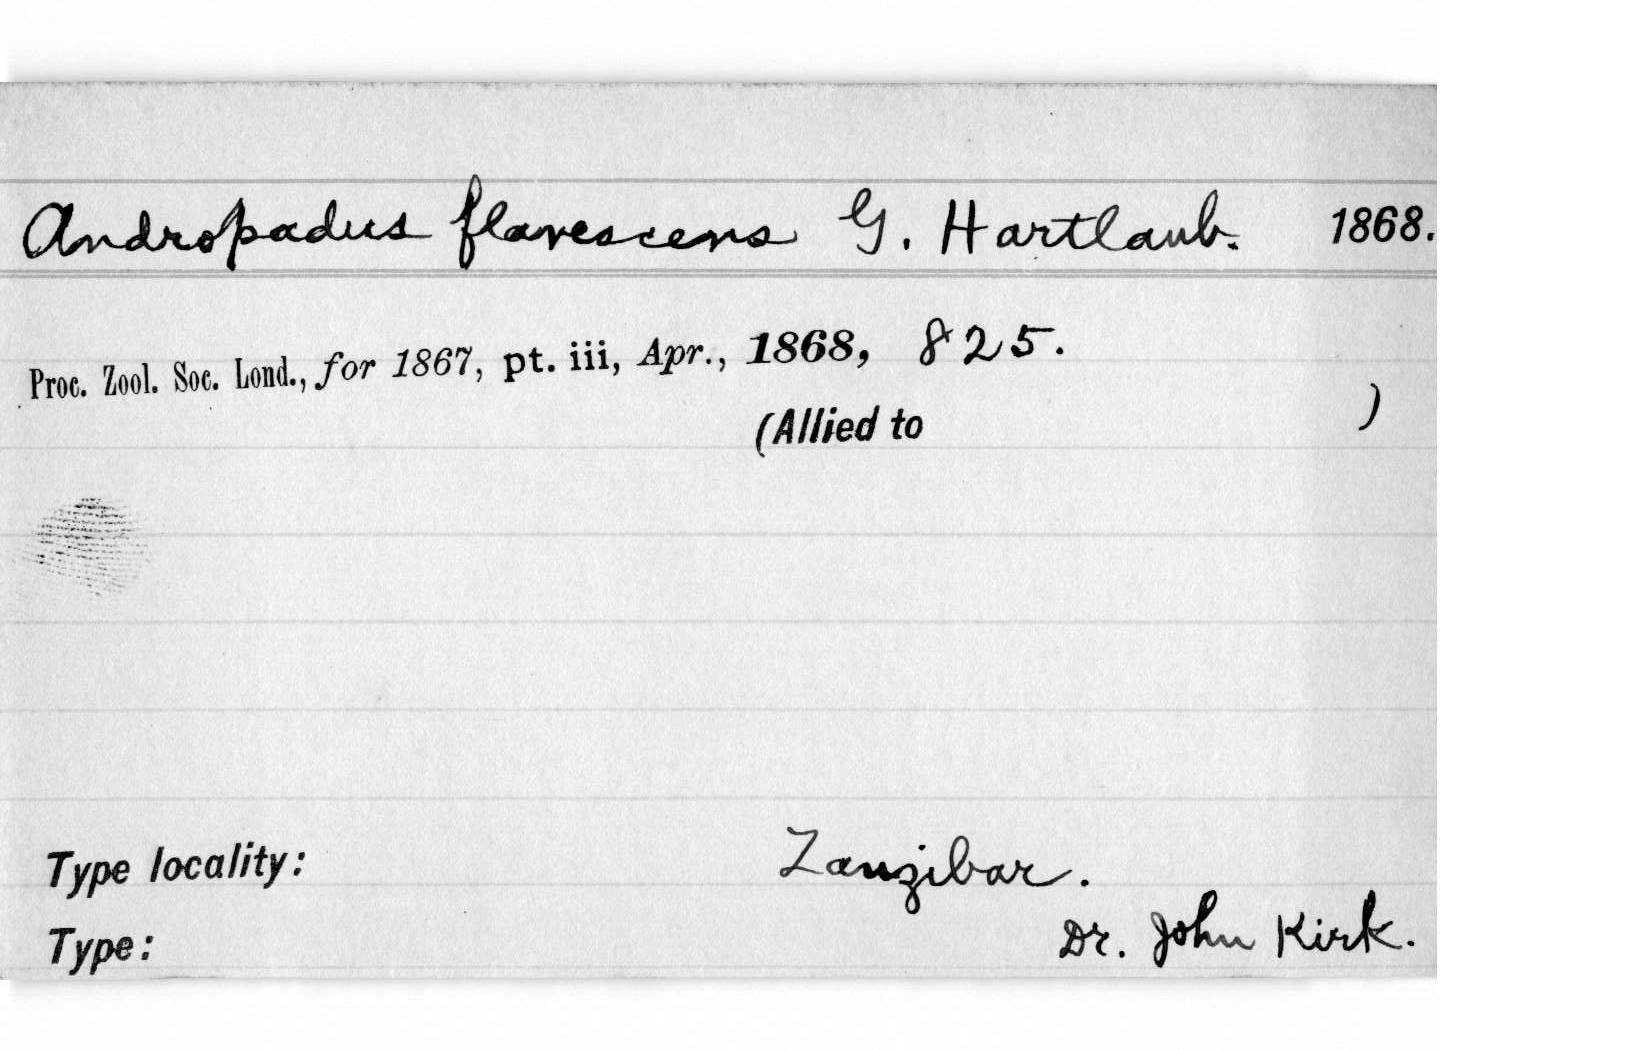 Andropadus flavescens G. Hartlaub. 1868.
Proc. Zool. Soc. Lond., for 1867, pt. iii, Apr., 1868, 825.
(Allied to )
Type locality: Zanzibar.
Type: Dr. John Kirk.